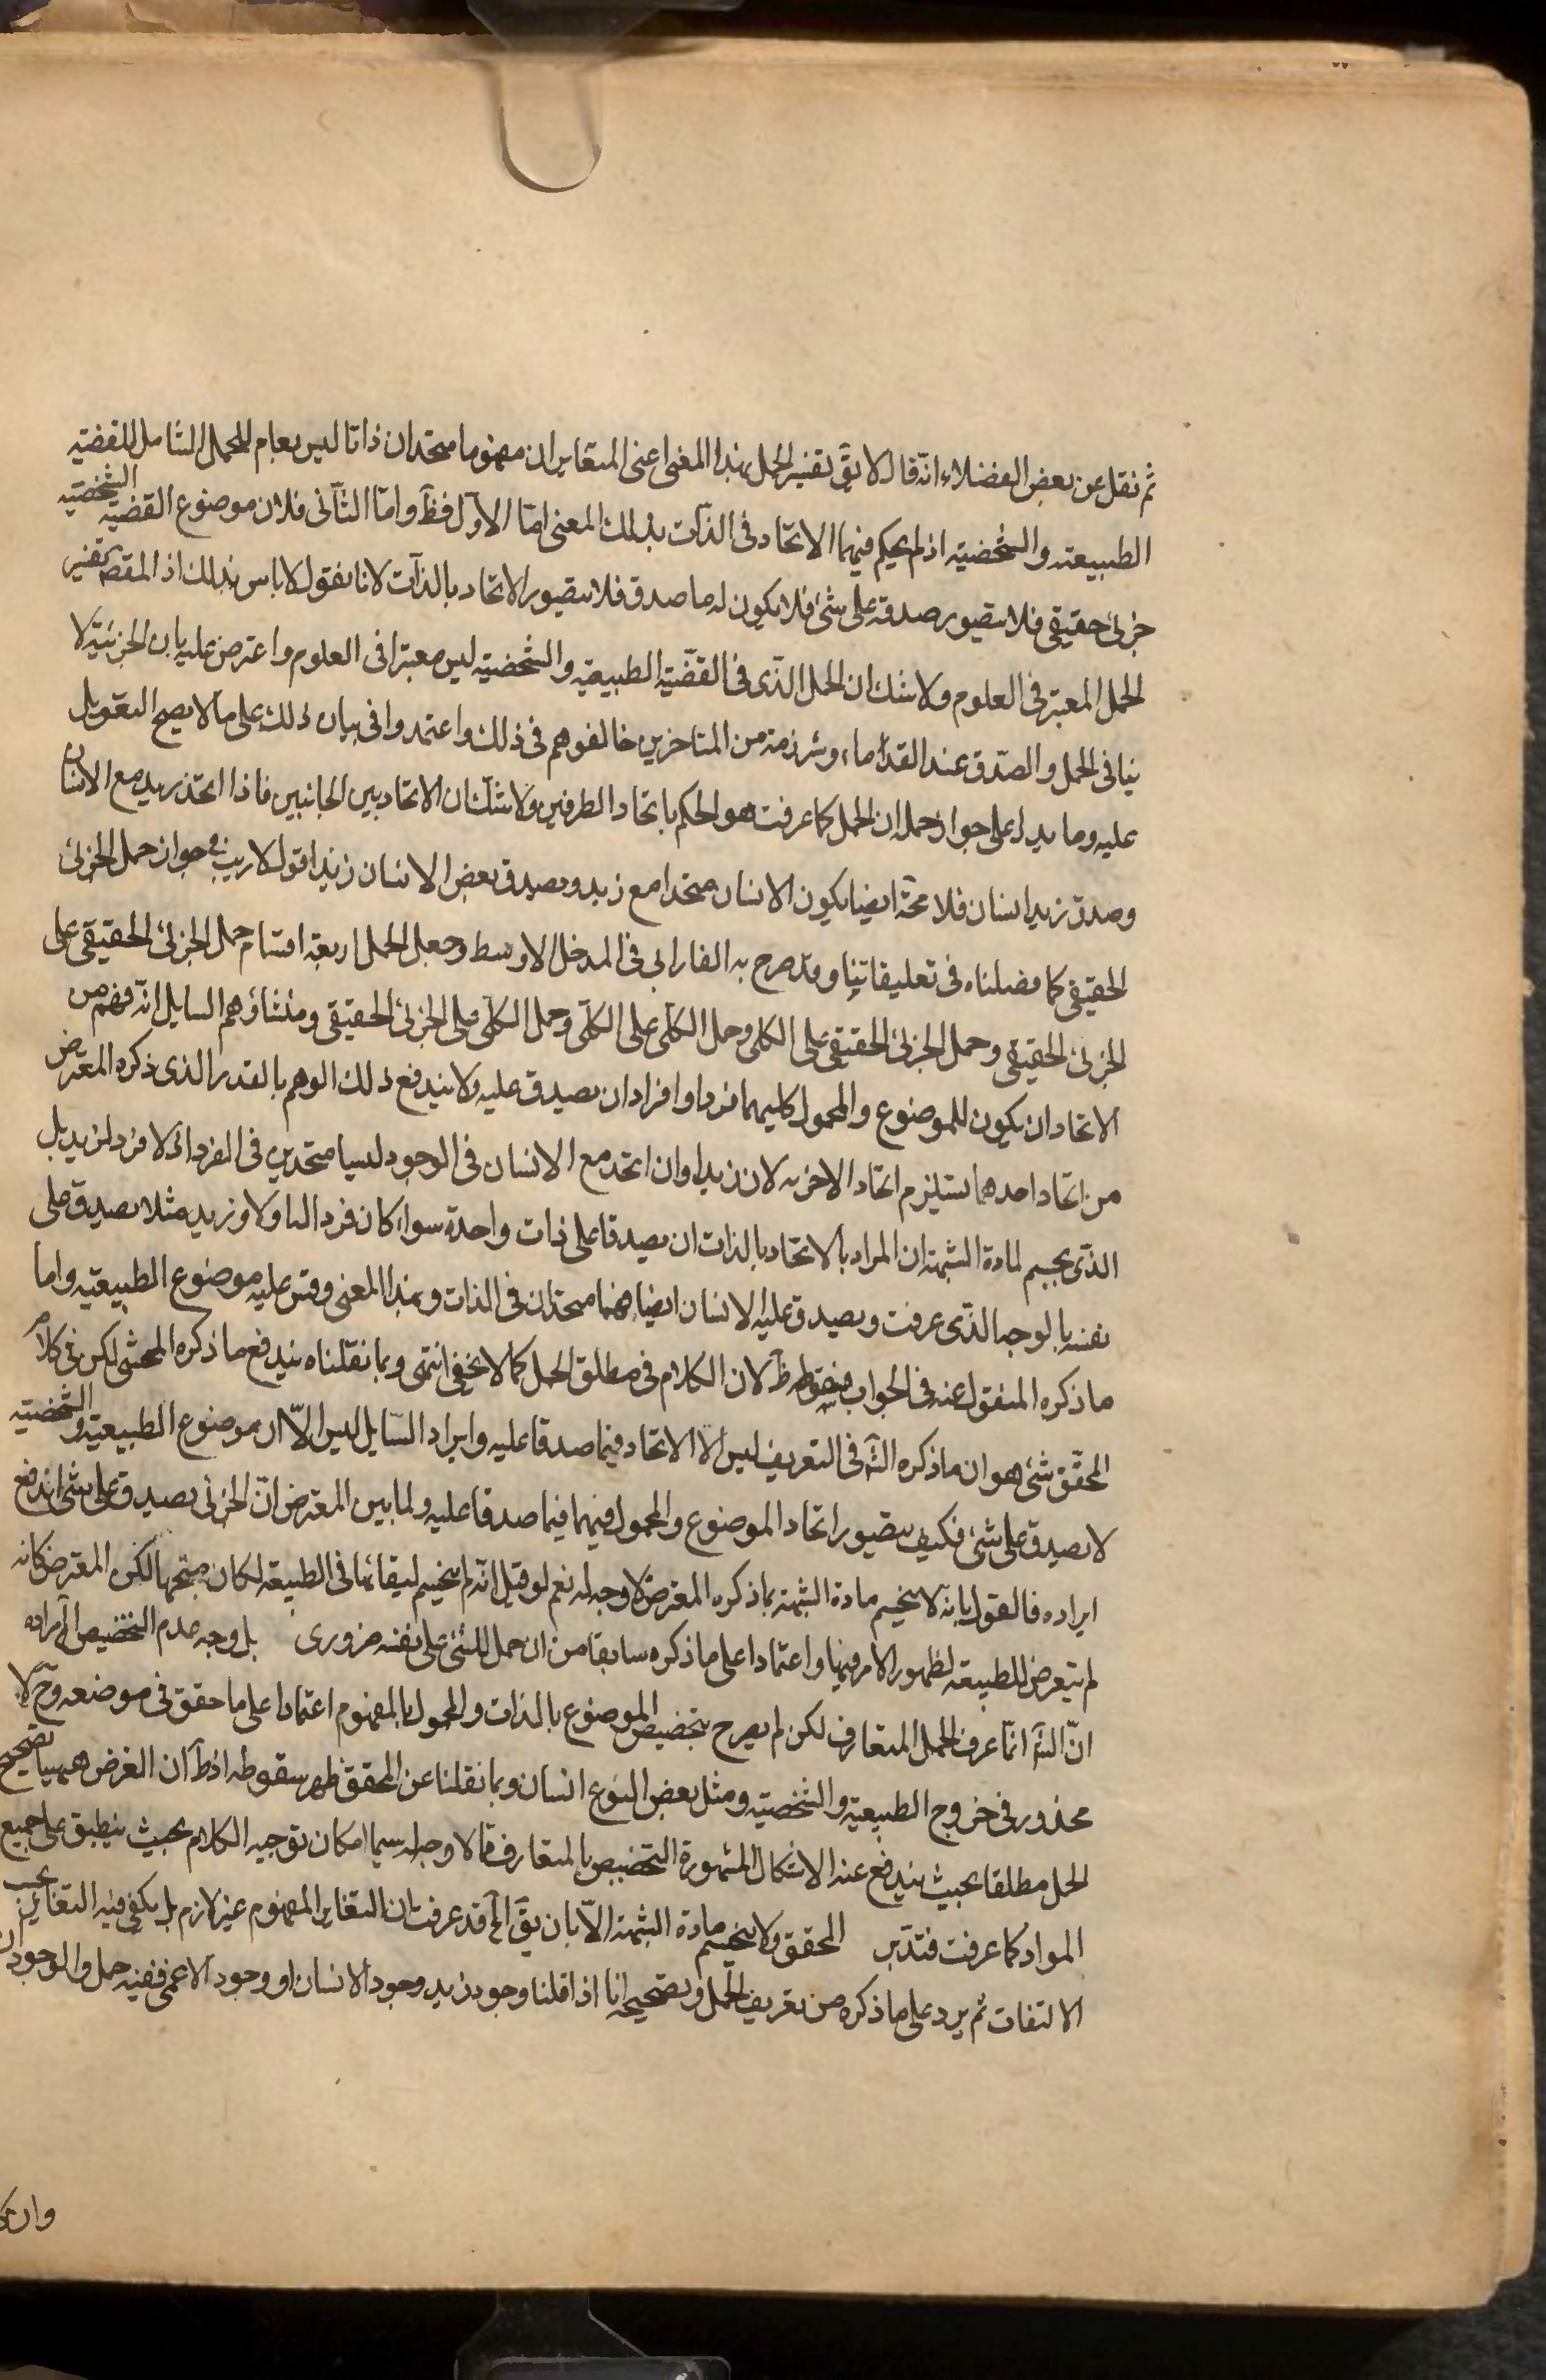 ثم نقل عن بعض الفضلاء انّه قال لا يقَ تفسير الحمل بهذا المعنى اعنى المتغايران مفهوما متحدان ذاتا ليس بعام للحمل الشامل للقضيّه
الطبيعته والشخصيّه اذ لم يحكم فيهما الاتحاد فى الذات بذلك المعنى امّا الاوّل فظَ وامّا الثانى فلان موضوع القضيّة الشخصيّه
جزئى حقيقى فلا يتصور صدقه على شئ فلا يكون له ما صدق فلا يتصور الاتحاد بالذات لانا نقول لا باس بذلك اذ المقصَ تفسير
الحمل المعتبر فى العلوم ولا شك ان الحمل الذّى فى القضيّة الطبيعيّه والشخصيّه ليس معتبرا فى العلوم واعترض عليه بان الجزئيّة لا
ينافى الحمل والصّدق عند القدماء وشرذمة من المتاخرين خالفوهم فى ذلك واعتمدوا فى بيان ذلك على ما لا يصح التعويل
عليه وما يدل على جواز حمله ان الحمل كما عرفت هو الحكم باتحاد الطرفين ولا شك ان الاتحاد بين الجانبين فاذا اتحد زيد مع الانسان
وصدق زيد انسان فلا محَة ايضا يكون الانسان متحدا مع زيد ويصدق بعض الانسان زيد اقول لا ريب فى جواز حمل الجزئى
الحقيقى كما فصلناه فى تعليقاتنا وقد صرح به الفارابى فى المدخل الاوسط وجعل الحمل اربعة اقسام حمل الجزئى الحقيقى على
الجزئى الحقيقى وحمل الجزئى الحقيقى على الكلى وحمل الكلّى على الكلّى وحمل الكلّى على الجزئى الحقيقى ومنشاؤ وهم السايل انّه فهم من
الاتحاد ان يكون للموضوع والمحمول كليهما فردا وافرادا ان يصدق عليه ولا يندفع ذلك الوهم بالقدر الذى ذكره المعترض
من اتحاد احدهما يستلزم اتحاد الاخر به لان زيدا وان اتحد مع الانسان فى الوجود ليسا متحدين فى الفرد اذ لا فرد لزيد بل
الذّى يحسم لمادة الشبهة ان المراد بالاتحاد بالذات ان يصدقا على ذات واحدة سواء كان فرد الها ولا وزيد مثلا يصدق على
نفسه بالوجه الذّى عرفت ويصدق عليه الانسان ايضا فهما متحدان فى الذات وبهذا المعنى وقس عليه موضوع الطبيعيّه واما
ما ذكره المنقول عنه فى الجواب فسقوطه ظَ لان الكلام فى مطلق الحمل كما لا يخفى انتهى وبما نقلناه يندفع ما ذكره المحشى لكن فى كلام
المحقّق شئ هو ان ما ذكره الشَ فى التعريف ليس الا الاتحاد فيما صدقا عليه وايراد السّايل ليس الّا ان موضوع الطبيعيّة والشخصيّه
لا يصدق على شئ فكيف يتصور اتحاد الموضوع والمحمول فيهما فيما صدقا عليه ولما بين المعترض انّ الجزئى يصدق على شئ اندفع
ايراده فالقول بانه لا يحسم مادة الشبهة بما ذكره المعترض لا وجه له نعم لو قيل انّه لم يحسم لبقائها فى الطبيعة لكان متجها لكن المعترض كانه
لم يتعرض للطبيعة لظهور الامر فيها واعتمادا على ما ذكره سابقا من ان حمل الشئ على نفسه ضرورى بل وجه عدم التخصيص الَخ مراده
انّ الشَ انّما عرف الحمل المتعارف لكن لم يصرح بتخصيص الموضوع بالذات والمحمول بالمفهوم اعتمادا على ما حقق فى موضعه وحَ لا
محذور فى خروج الطبيعيّه والشخصيّه ومثل بعض النوع انسان وبما نقلنا عن المحقق ظهر سقوطه اذ ظَ ان الغرض ههنا تصحيح
الحمل مطلقا بحيث يندفع عنه الاشكال المشهورة التخصيص بالمتعارف مما لا وجه له سيما امكان توجيه الكلام بحيث ينطبق على جميع
المواد كما عرفت فتدّبر المحقق ولا يحسم مادة الشبهة الّا بان يقَ الَخ قد عرفت ان التغاير المفهوم غير لازم بل يكفى فيه التغاير بحسب
الالتفات ثم يرد على ما ذكره من تعريف الحمل وتصحيحه انا اذا قلنا وجود زيد وجود الانسان او وجود الاعمى ففيه حمل والوجودان
وان